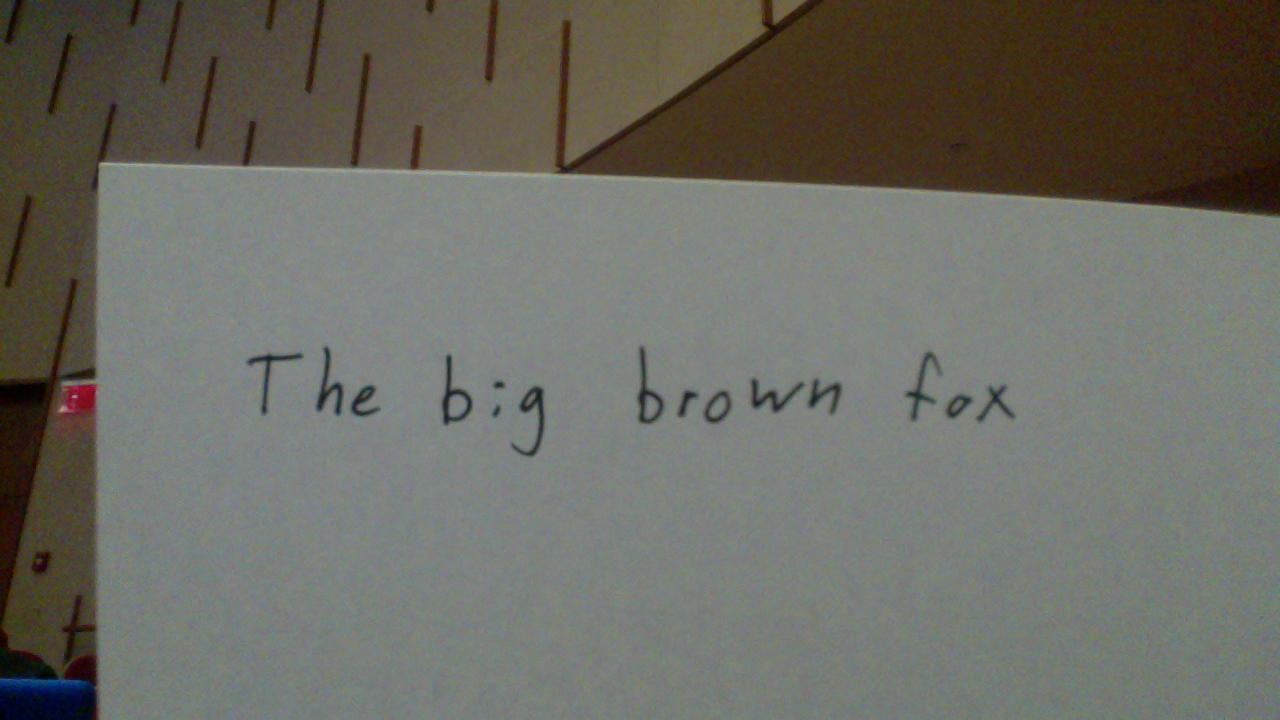 The big brown fox